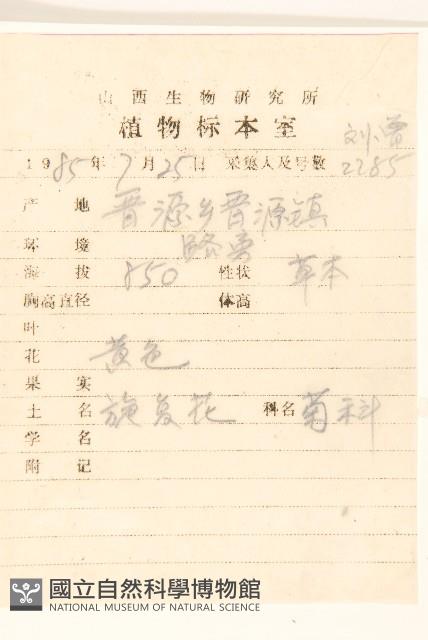 山西生物研究所
植物标本室
刘小
1985年7月25日 采集人及号数 2285
产地 晋源乡晋源镇
路旁
环境
海拔 850 性状 草本
胸高直径 体高
叶
花 黄色
果实
土名 旋复花 科名 菊科
学名
附记
國立自然科學博物館
NATIONAL MUSEUM OF NATURAL SCIENCE